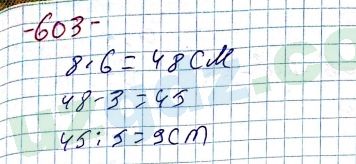 -603-
8·6=48 СМ
48-3=45
45:5=9СМ